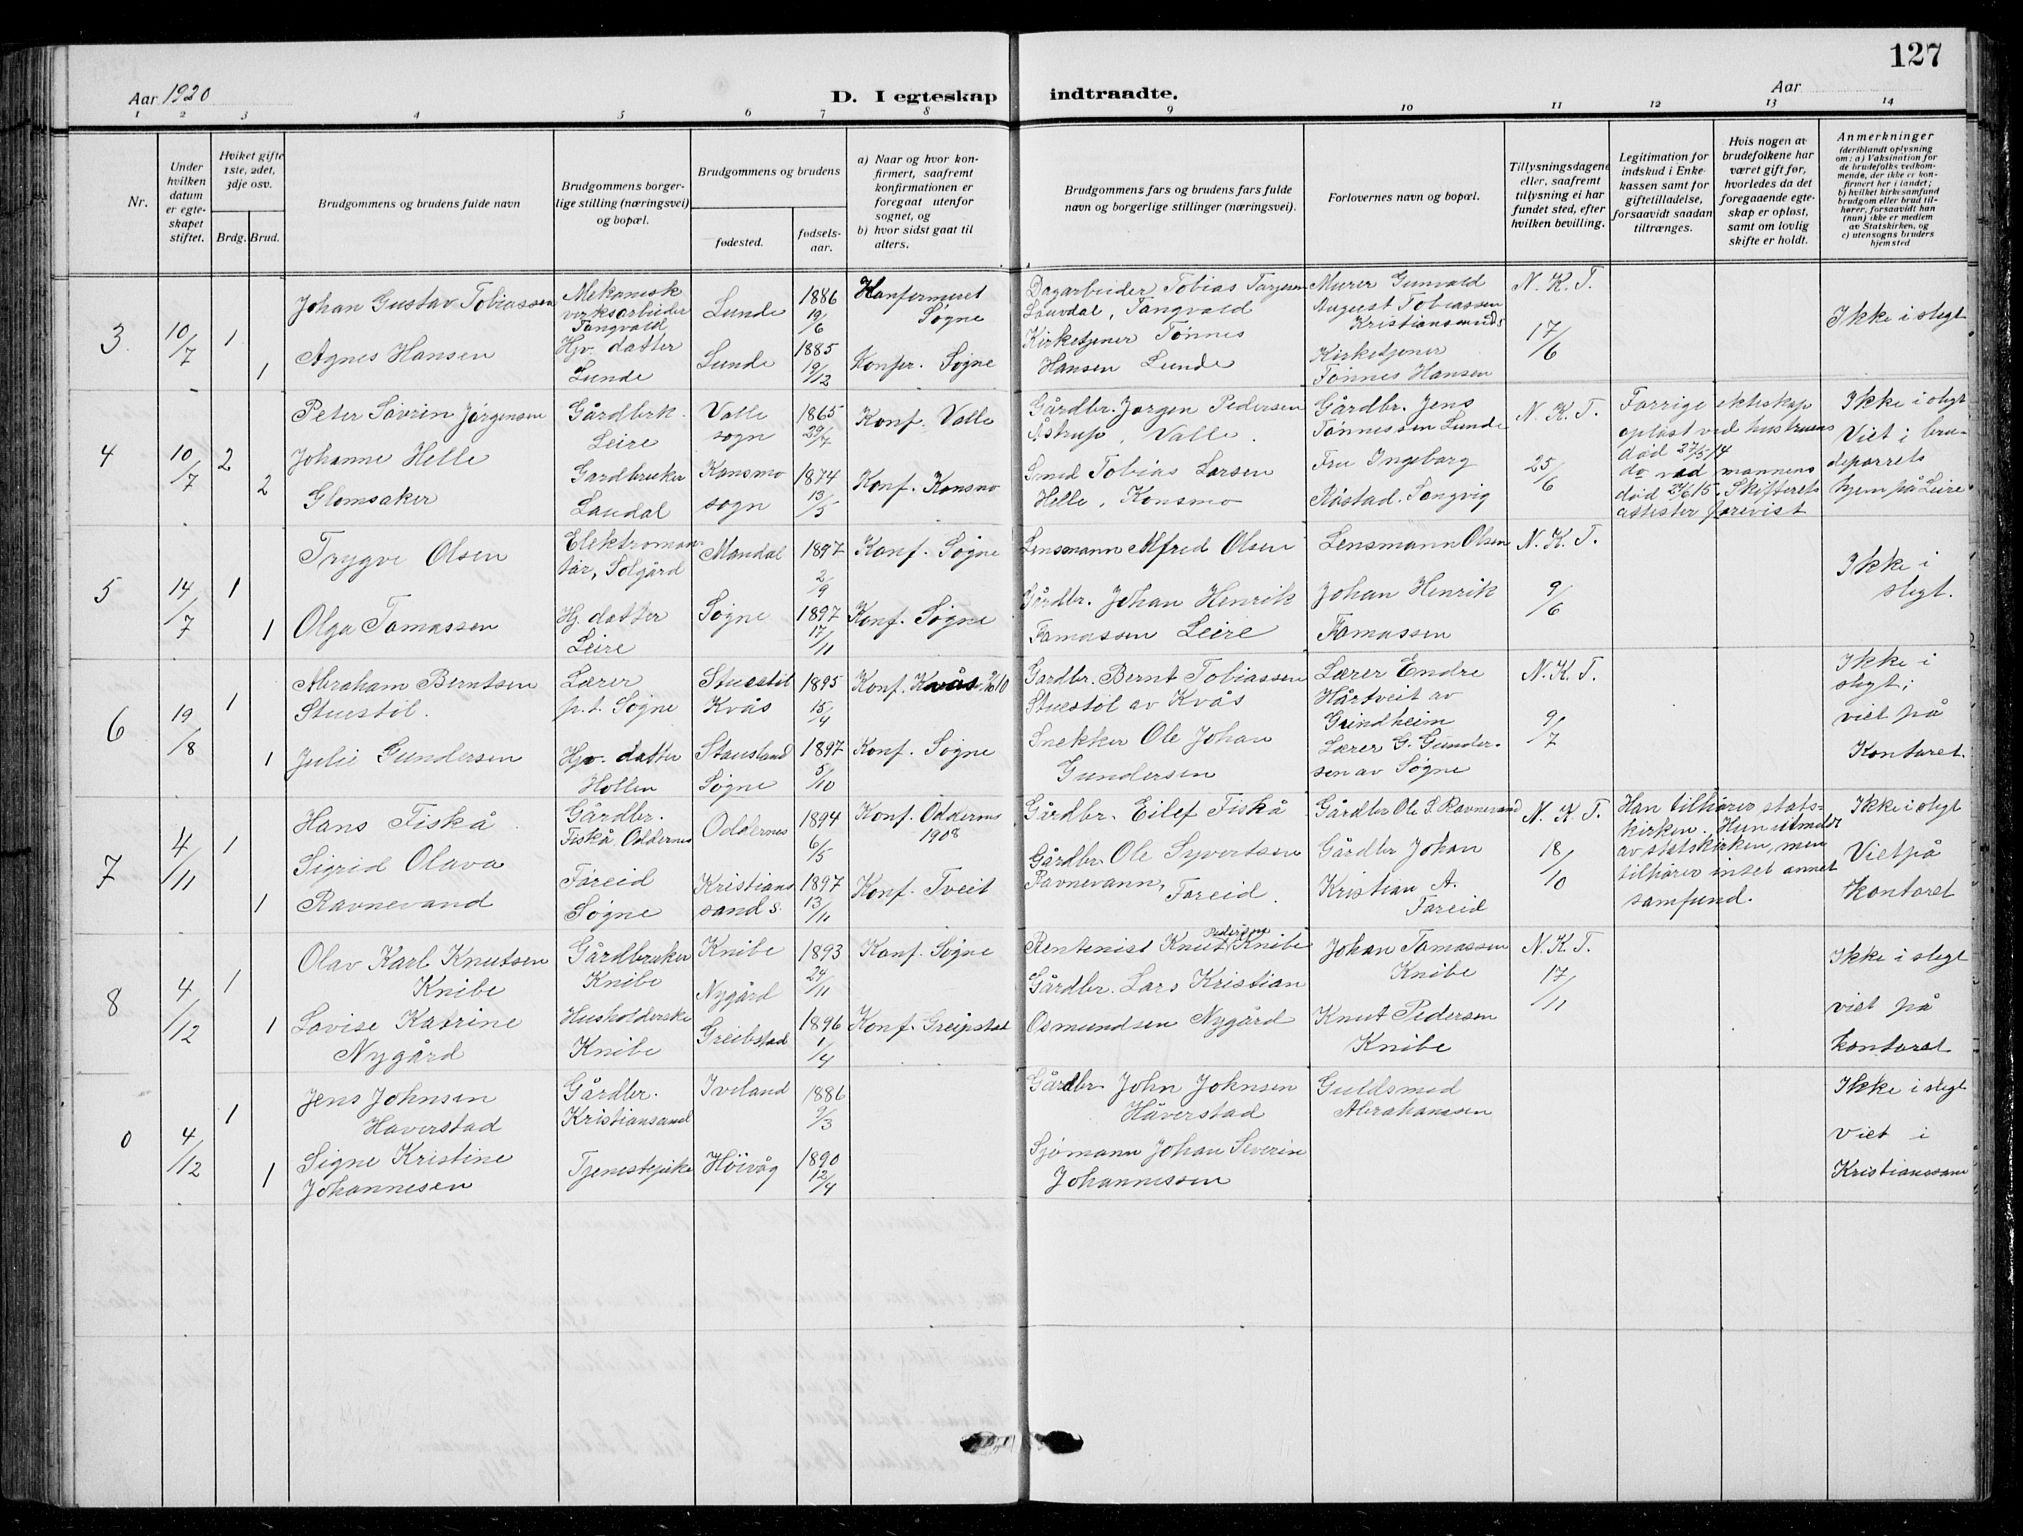 127
Aar 1920
D. I egteskap indtraadte.
Aar
1 2 3 4 5 6 7 8 9 10 11 12 13 14
Nr.
Under hvilken datum er egteskapet stiftet.
Hvilket gifte 1ste, 2det, 3dje osv.
Brdg. Brud.
Brudgommens og brudens fulde navn
Brudgommens borgerlige stilling (næringsvei) og bopæl.
Brudgommens og brudens
fødested.
fødselsaar.
a) Naar og hvor konfirmert, saafremt konfirmationen er foregaat utenfor sognet, og
b) hvor sidst gaat til alters.
Brudgommens fars og brudens fars fulde navn og borgerlige stillinger (næringsvei).
Forlovernes navn og bopæl.
Tillysningsdagene eller, saafremt tillysning ei har fundet sted, efter hvilken bevilling.
Legitimation for indskud i Enkekassen samt for giftetilladelse, forsaavidt saadan tiltrænges.
Hvis nogen av brudefolkene har været gift før, hvorledes da det foregaaende egteskap er opløst, samt om lovlig skifte er holdt.
Anmerkninger (deriblandt oplysning om: a) Vaksination for de brudefolks vedkommende, der ikke er konfirmert her i landet; b) hvilket kirkesamfund brudgom eller brud tilhører, forsaavidt han (hun) ikke er medlem av Statskirken, og c) utensogns bruders hjemsted
3 10/7 1 Johan Gustav Tobiassen Mekanisk verksarbeider Tangvald Lunde 1886 19/6 Konfermeret Søgne Dagarbeider Tobias Tarjesen Lauvdal, Tangvald Murer Gunvald August Tobiassen Kristiansund N. K. T. 17/6 Ikke i slegt
1 Agnes Hansen Hjv. datter Lunde Lunde 1885 19/12 Konfer. Søgne Kirketjener Tønnes Hansen Lunde Kirketjener Tønnes Hansen
4 10/7 2 Peter Søvrin Jørgensen Gårdbrk. Leire Valle sogn 1865 29/7 Konf. Valle Gårdbr. Jørgen Pedersen Åstrup, Valle. Gårdbr. Jens Tønnessen Lunde N. K. T. 25/6 Forrige ekteskap opløst ved hustruens død 27/5 14 do ved mannens død 24/6 15. Skifterets attester forevist Ikke i slegt Viet i brudeparrets hjem på Leire
2 Johanne Helle Glomsaker Gardbruker Laudal Konsmo sogn 1874 13/5 Konf. Konsmo Smed Tobias Larsen Helle, Konsmo Fru Ingeborg Røstad. Langvig
5 14/7 1 Trygve Olsen Elektromontør, Solgård Mandal 1897 2/9 Konf. Søgne Lensmann Alfred Olsen Lensmann Olsen N. K. T. 9/6 Ikke i slegt.
1 Olga Tomassen Hj. datter Leire Søgne 1897 17/11 Konf. Søgne Gårdbr. Johan Henrik Tomassen Leire Johan Henrik Tomassen
6 19/8 1 Abraham Berntsen Stuestøl. Lærer p.t. Søgne Stuestøl Kvås 1895 15/4 Konf. Kvås Gardbr. Bernt Tobiassen Stuestøl av Kvås Lærer Endre Hårtveit av Grindheim N. K. T. 9/7 Ikke i slegt; viet på Kontoret.
1 Julie Gundersen Hjv. datter Hollen Stausland Søgne 1897 5/10 Konf. Søgne Snekker Ole Johan Gundersen Lærer G. Gundersen av Søgne
7 4/11 1 Hans Fiskå Gårdbr. Fiskå Oddernes Oddernes 1894 6/5 Konf. Oddernes 1908 Gårdbr. Eilef Fiskå Gårdbr Ole S. Ravnevand N. K. T. 18/10 Han tilhører statskirken. Hun utmeldt av statskirken, men tilhører intet annet samfund. Ikke i slegt Viet på kontoret
1 Sigrid Olava Ravnevand Toreid Søgne Kristianssand s. 1897 13/11 Konf. Tveit Gårdbr. Ole Syvertsen Ravnevann, Toreid. Gårdbr Johan Kristian A. Toreid
8 4/12 1 Olav Karl Knutsen Knibe Gårdbruker Knibe Knibe 1893 24/11 Konf. Søgne Rentenist Knut Pedersen Knibe Johan Tomassen Knibe N. K. T. 17/11 Ikke i slegt viet på kontoret
1 Lovise Katrine Nygård Husholderske Knibe Nygård Greibstad 1896 1/4 Konf. Greipstad Gårdbr. Lars Kristian Osmundsen Nygård Knut Pedersen Knibe
0 4/12 1 Jens Johnsen Haverstad Gårdbr. Kristiansand Iveland 1886 9/3 Gårdbr. John Johnsen Håverstad Guldsmed Abrahamsen Ikke i slegt Viet i Kristianssand
1 Signe Kristine Johannesen Tjenestepike Høivåg 1890 12/4 Sjømann Johan Severin Johannessen